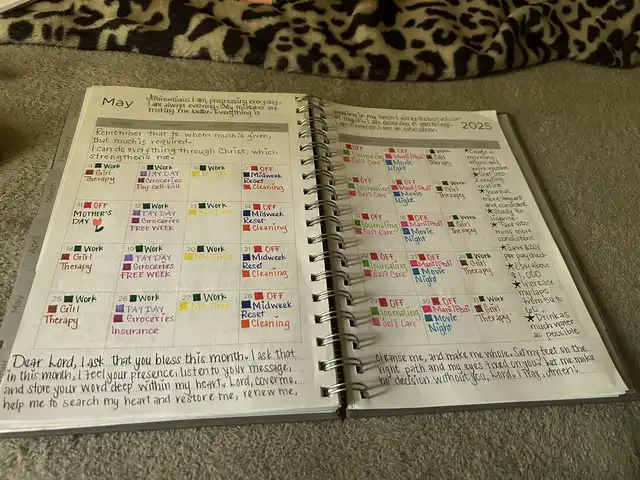 May
Affirmations: I am progressing everyday.
I am always evolving. My mistakes are
making me better. Everything is
Remember that to whom much is given,
that much is required.
I can do everything through Christ, which
strengthens me.
4 Work
Girl
Therapy
5 Work
PAY DAY
Groceries
Pay cell bill
6 Work
Me Time
7 OFF
Midweek
Reset
Cleaning
11 OFF
MOTHER'S
DAY
12 Work
PAY DAY
Groceries
FREE WEEK
13 Work
Me Time
14 OFF
Midweek
Reset
Cleaning
18 Work
Girl
Therapy
19 Work
PAY DAY
Groceries
FREE WEEK
20 Work
Me Time
21 OFF
Midweek
Reset
Cleaning
25 Work
Girl
Therapy
26 Work
PAY DAY
Groceries
Insurance
27 Work
Me Time
28 OFF
Midweek
Reset
Cleaning
Dear Lord, I ask that you bless this month. I ask that
in this month, I feel your presence, listen to your message,
and store your word deep within my heart. Lord, cover me,
help me to search my heart and restore me, renew me,
2025
OFF
Journaling
Self Care
OFF
Mani/Pedi
Movie
Night
Work
Girl
Therapy
OFF
Journaling
Self Care
OFF
Mani/Pedi
Movie
Night
Work
Girl
Therapy
OFF
Journaling
Self Care
OFF
Mani/Pedi
Movie
Night
Work
Girl
Therapy
22 OFF
Journaling
Self Care
OFF
Mani/Pedi
Movie
Night
Work
Girl
Therapy
29 OFF
Journaling
Self Care
30 OFF
Mani/Pedi
Movie
Night
Work
Girl
Therapy
Create a
morning
routine
Journal
more
and consistent
Study for
Take your
more
consistent
Save $
per paycheck
Stay above
$1,000
Increase
my laps
from 30 to
Drink as
much water
as possible
cleanse me, and make me whole. Set my feet on the
right path and my eyes fixed on you. Let me make
no decision without you, Lord. I Pray, Amen!